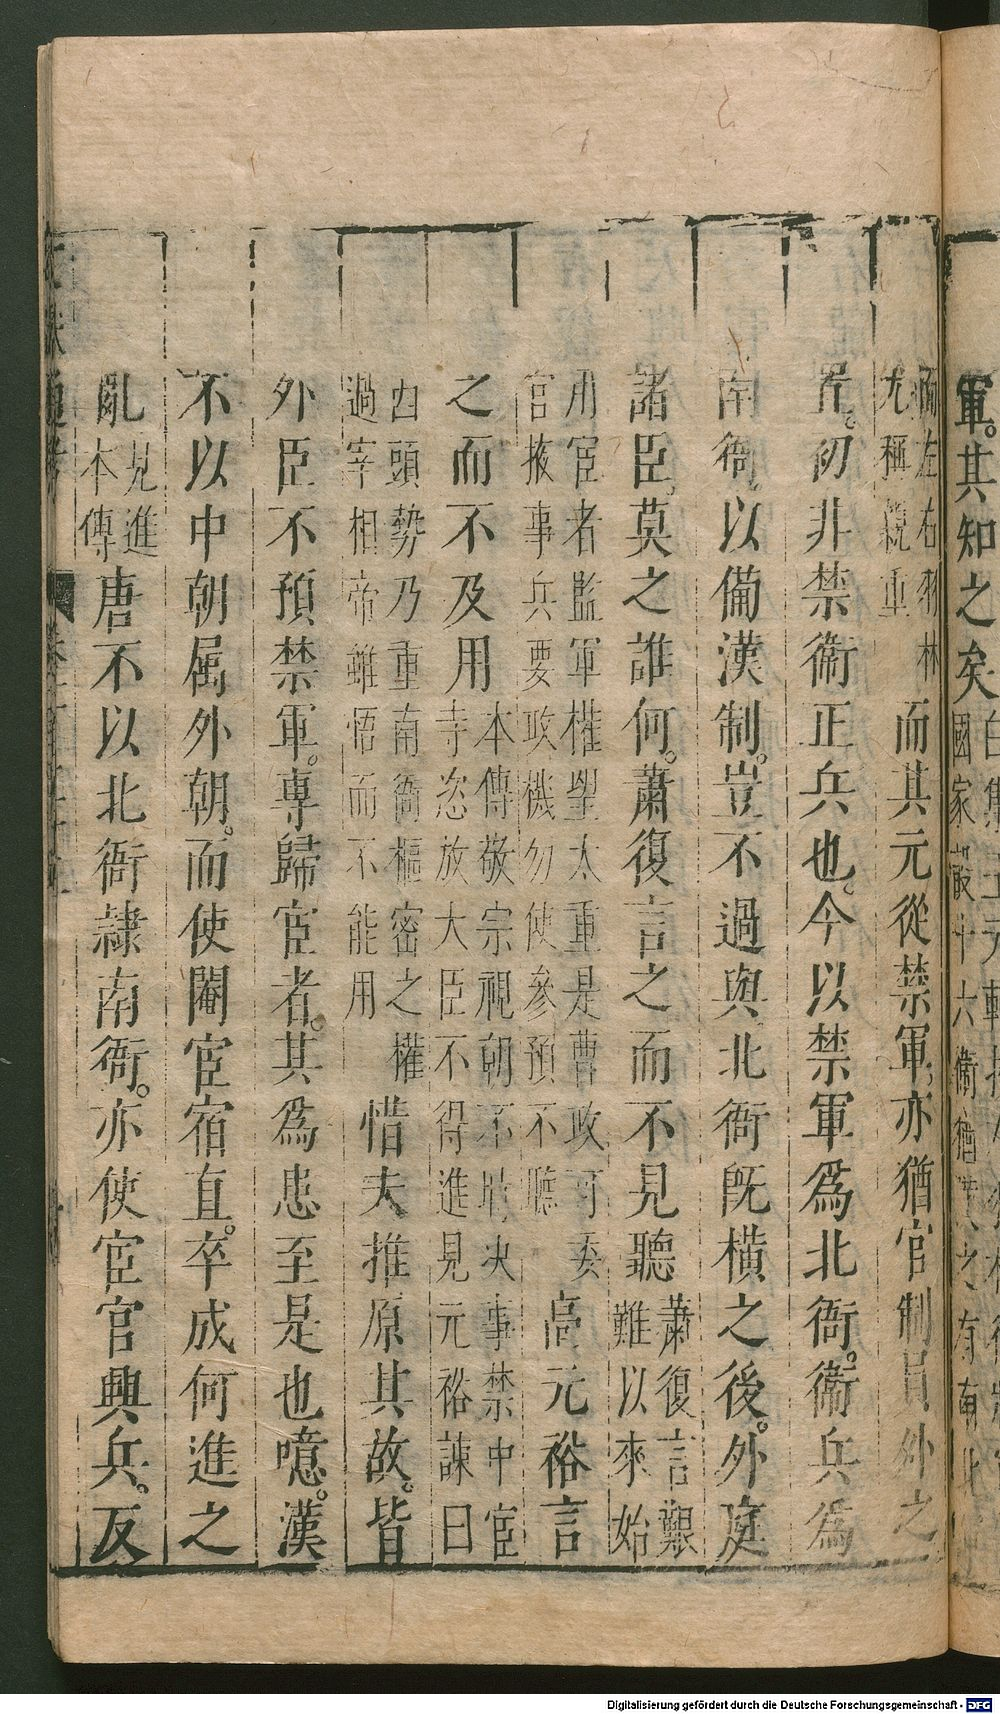 軍。其知之矣
國家嚴十六衛
爾左右羽林
尤稱親重
而其元從禁軍。亦猶官制員外之
置。初非禁衛正兵也。今以禁軍爲北衙。衛兵爲
南衙。以備漢制。豈不過與北衙旣橫之後。外庭
諸臣。莫之誰何。蕭復言之而不見聽
蕭復言艱
難以來始
用宦者監軍權望太重是曹政可委
官掖事兵要政機勿使參預不聽
高元裕言
之而不及用
本傳敬宗視朝不時決事禁中宦
寺恣放大臣不得進見元裕諫曰
西頭勢乃重南衙樞密之權
過宰相帝雖悟而不能用
惜夫推原其故。皆
外臣不預禁軍。專歸宦者。其爲患至是也噫。漢
不以中朝属外朝。而使閹宦宿直。卒成何進之
亂
見進
本傳
唐不以北衙隷南衙。亦使宦官興兵。反
通考
Digitalisierung gefördert durch die Deutsche Forschungsgemeinschaft - DFG